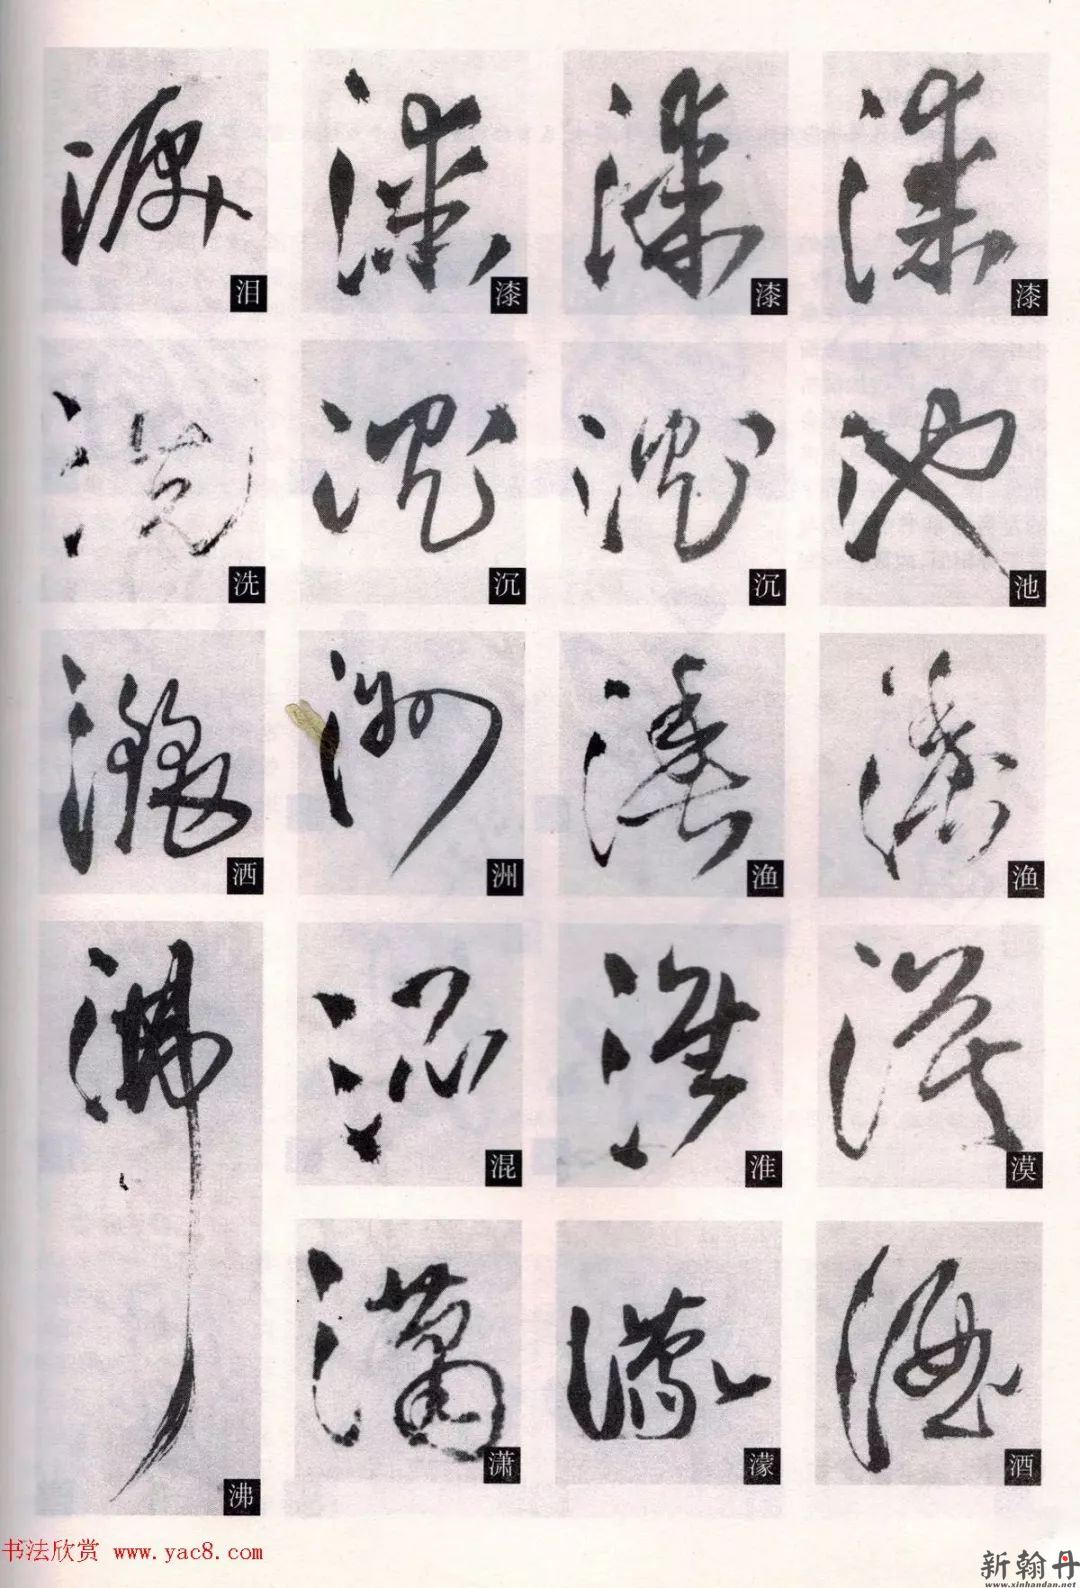 泪 漆 漆 漆
洗 沉 沉 池
洒 洲 渔 渔
沸 混 淮 漠
潇 濛 酒
书法欣赏 www.yac8.com
新翰丹
www.xinhandan.net